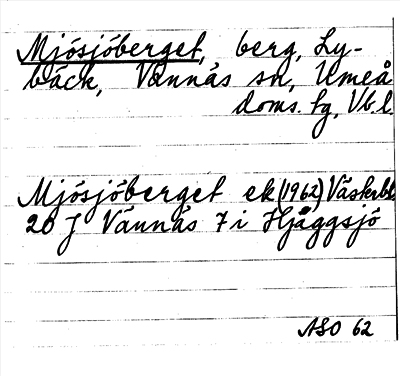 Mjösjöberget, berg, Ly-
bäck, Vännäs sn, Umeå
doms. hg, Vb. l.
Mjösjöberget ek (1962) Västerbl.
20 J Vännäs 7 i Hjåggsjö
ASO 62